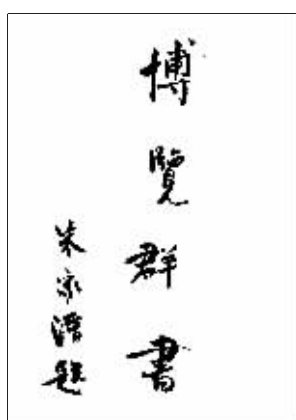 博覽群書
朱家溍題